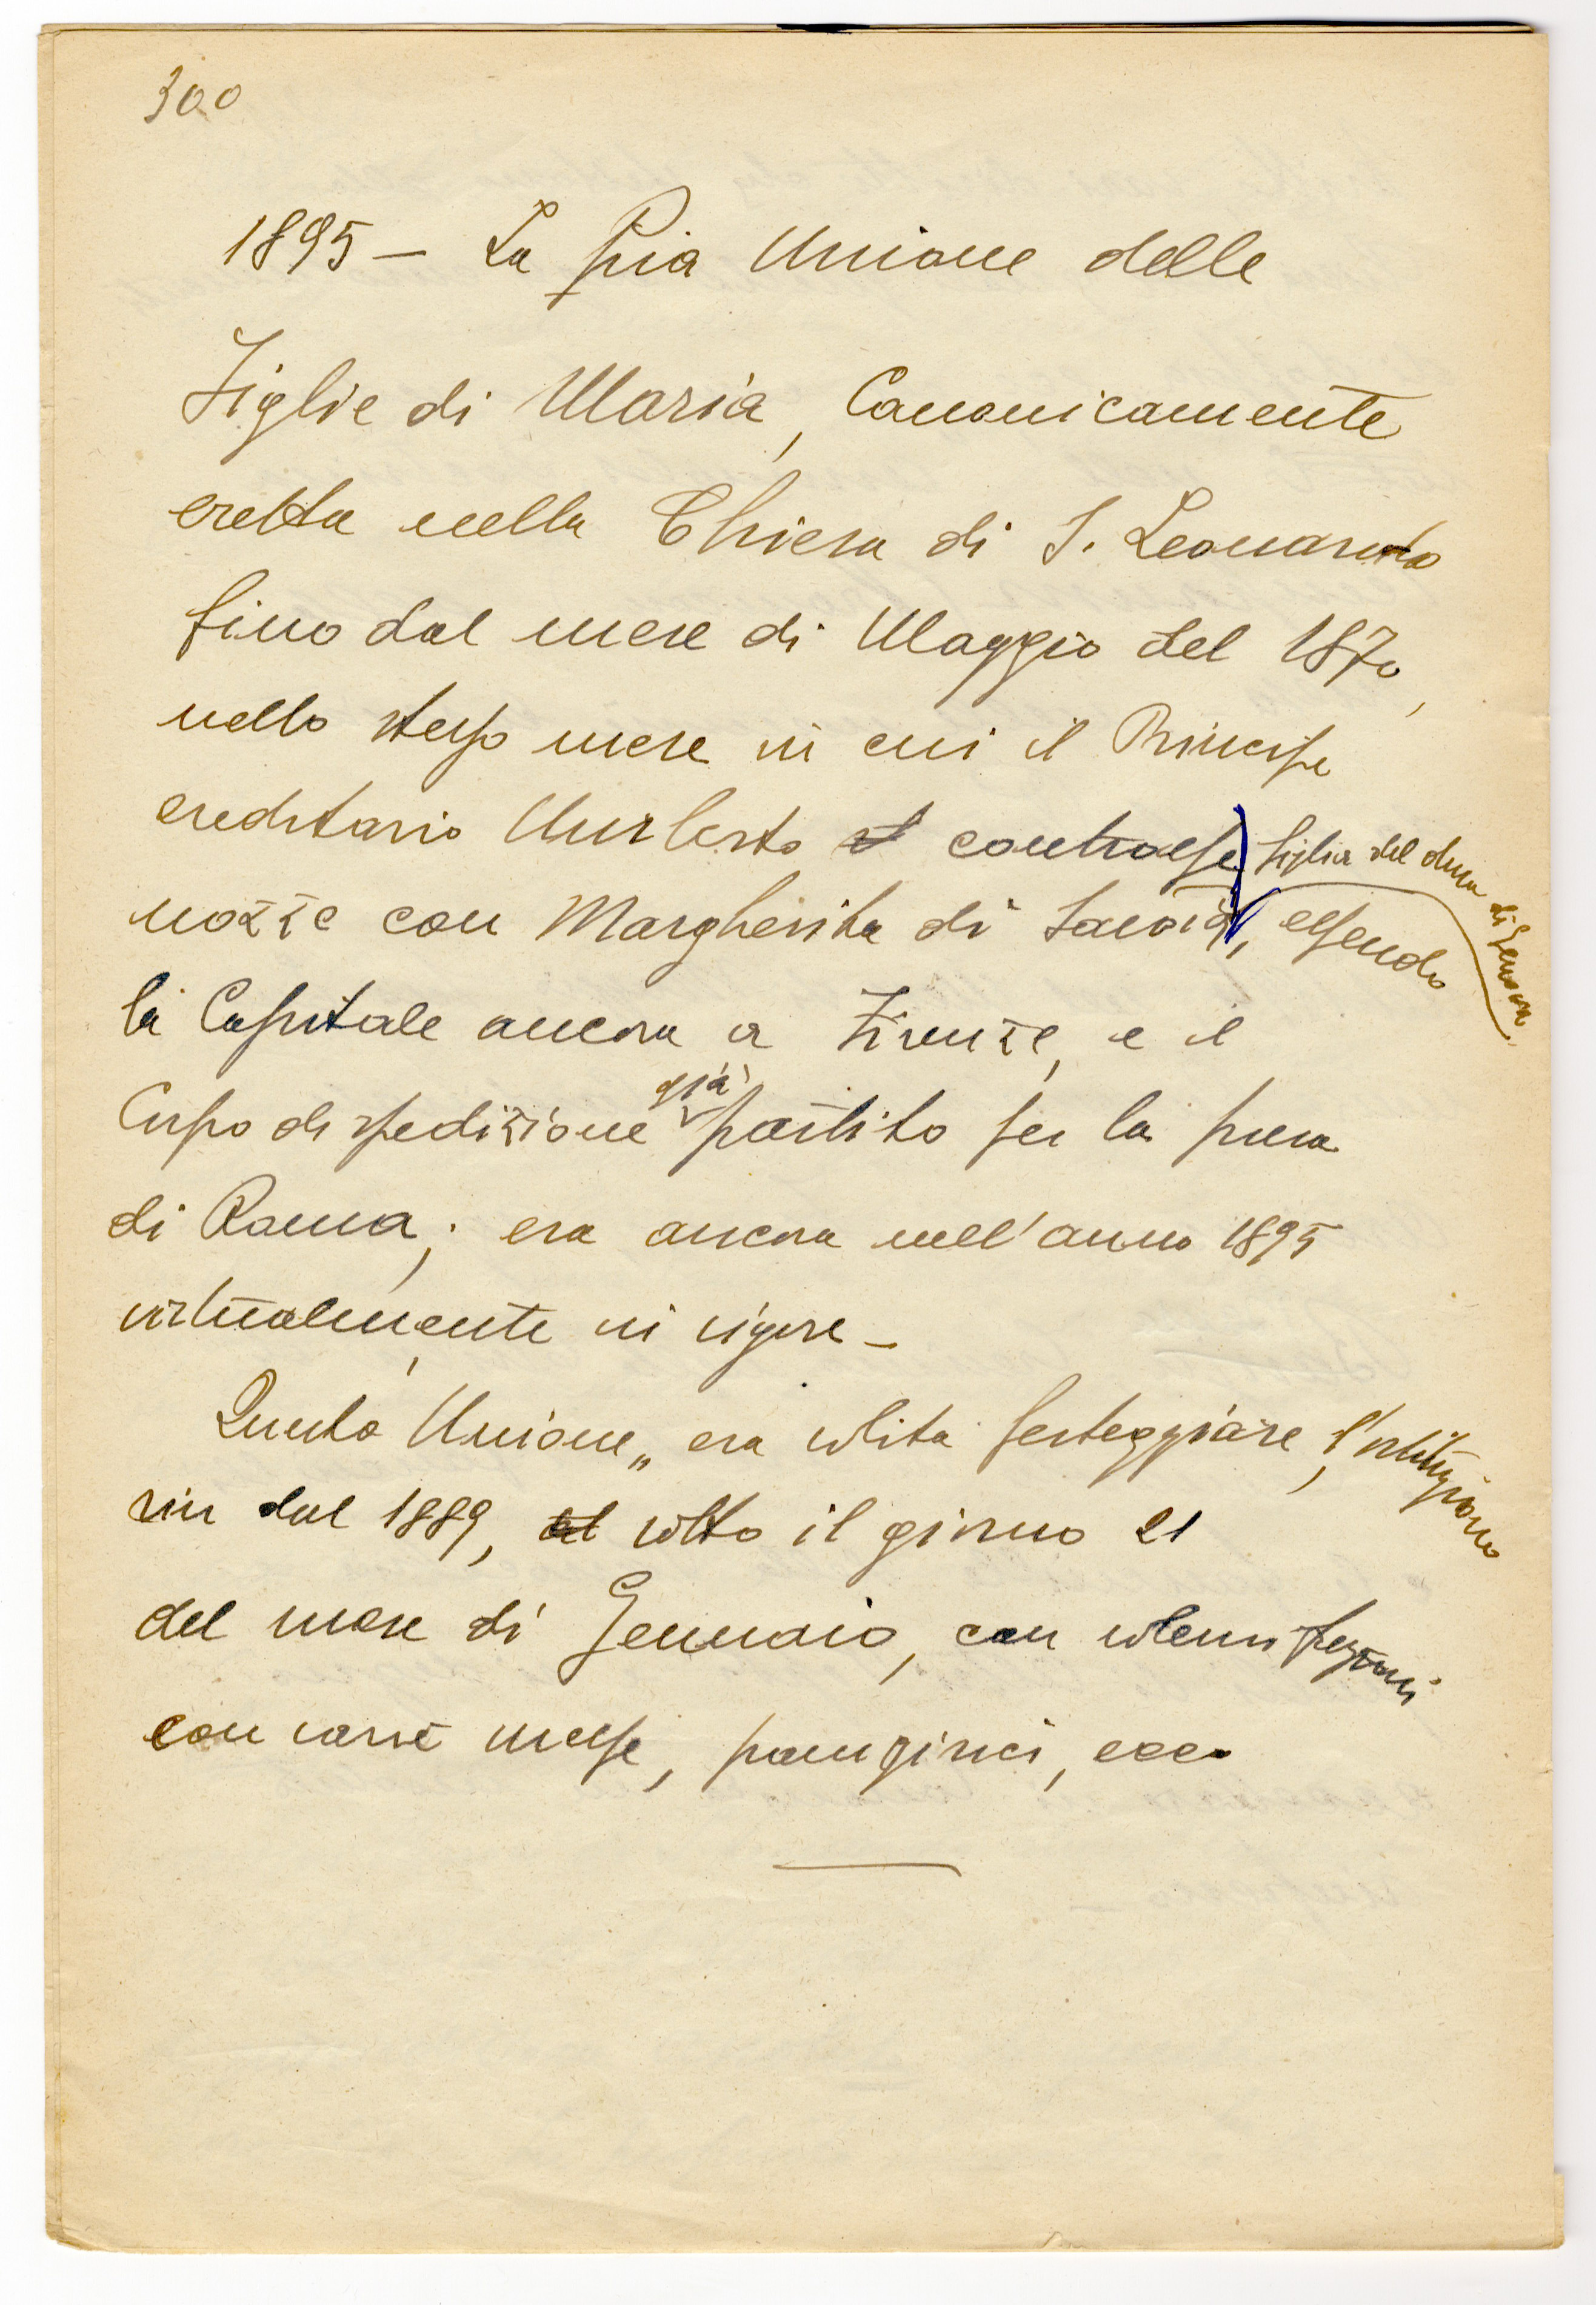 300
1895 – La Pia Unione delle
Figlie di Maria, Canonicamente
eretta nella Chiesa di S. Leonardo
fino dal mese di Maggio del 1870,
nello stesso mese in cui il Principe
ereditario Umberto contraesse figlia del duca di Genova
nozze con Margherita di Savoia, essendo
la Capitale ancora a Firenze, e il
già
Corpo di spedizione partito per la presa
di Roma; era ancora nell'anno 1895
virtualmente in vigore –
Questa Unione,, era solita festeggiare, l'istituzione
sin dal 1889, sotto il giorno 21
del mese di Gennaio, con solenni funzioni
con varie messe, panegirici, ecc.